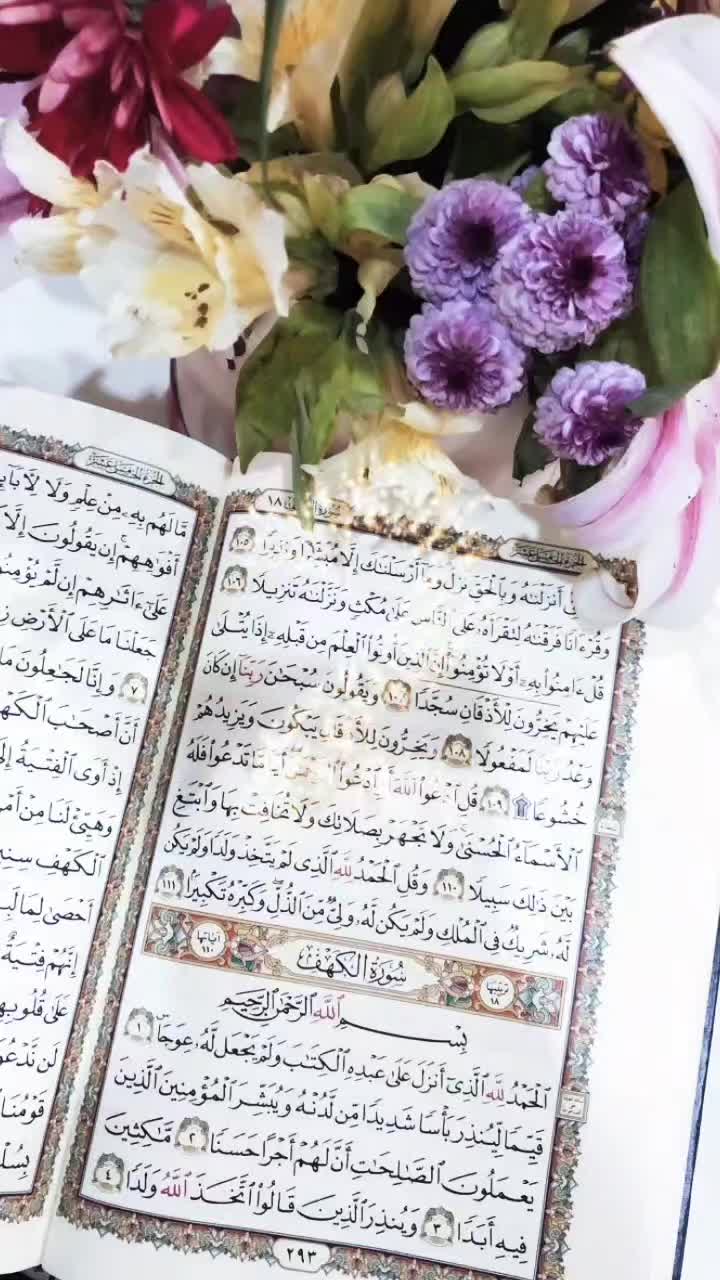 الجزء الخامس عشر
سورة ١٨
أَنزَلْنَٰهُ وَبِٱلْحَقِّ نَزَلَ وَمَآ أَرْسَلْنَٰكَ إِلَّا مُبَشِّرًا وَنَذِيرًا ١٠٥
وَقُرْءَانًا فَرَقْنَٰهُ لِتَقْرَأَهُۥ عَلَى ٱلنَّاسِ عَلَىٰ مُكْثٍ وَنَزَّلْنَٰهُ تَنزِيلًا ١٠٦
قُلْ ءَامِنُوا۟ بِهِۦٓ أَوْ لَا تُؤْمِنُوٓا۟ إِنَّ ٱلَّذِينَ أُوتُوا۟ ٱلْعِلْمَ مِن قَبْلِهِۦٓ إِذَا يُتْلَىٰ
عَلَيْهِمْ يَخِرُّونَ لِلْأَذْقَانِ سُجَّدًا ١٠٧ وَيَقُولُونَ سُبْحَٰنَ رَبِّنَآ إِن كَانَ
وَعْدُ رَبِّنَا لَمَفْعُولًا ١٠٨ وَيَخِرُّونَ يَبْكُونَ وَيَزِيدُهُمْ
خُشُوعًا ۩ ١٠٩ قُلِ ٱدْعُوا۟ ٱللَّهَ أَوِ ٱدْعُوا۟ أَيًّا مَّا تَدْعُوا۟ فَلَهُ
ٱلْأَسْمَآءُ ٱلْحُسْنَىٰ وَلَا تَجْهَرْ بِصَلَاتِكَ وَلَا تُخَافِتْ بِهَا وَٱبْتَغِ
بَيْنَ ذَٰلِكَ سَبِيلًا ١١٠ وَقُلِ ٱلْحَمْدُ لِلَّهِ ٱلَّذِى لَمْ يَتَّخِذْ وَلَدًا وَلَمْ يَكُن
لَّهُۥ شَرِيكٌ فِى ٱلْمُلْكِ وَلَمْ يَكُن لَّهُۥ وَلِىٌّ مِّنَ ٱلذُّلِّ وَكَبِّرْهُ تَكْبِيرًا ١١١
ترتيبها ١٨ سُورَةُ الكَهْفِ آياتها ١١٠
بِسْمِ ٱللَّهِ ٱلرَّحْمَٰنِ ٱلرَّحِيمِ
ٱلْحَمْدُ لِلَّهِ ٱلَّذِىٓ أَنزَلَ عَلَىٰ عَبْدِهِ ٱلْكِتَٰبَ وَلَمْ يَجْعَل لَّهُۥ عِوَجَاۜ ١
قَيِّمًا لِّيُنذِرَ بَأْسًا شَدِيدًا مِّن لَّدُنْهُ وَيُبَشِّرَ ٱلْمُؤْمِنِينَ ٱلَّذِينَ
يَعْمَلُونَ ٱلصَّٰلِحَٰتِ أَنَّ لَهُمْ أَجْرًا حَسَنًا ٢ مَّٰكِثِينَ
فِيهِ أَبَدًا ٣ وَيُنذِرَ ٱلَّذِينَ قَالُوا۟ ٱتَّخَذَ ٱللَّهُ وَلَدًا ٤
٢٩٣
الجزء الخامس عشر
مَّا لَهُم بِهِۦ مِنْ عِلْمٍ وَلَا لِـَٔابَآئِ
أَفْوَٰهِهِمْ إِن يَقُولُونَ إِلَّا
عَلَىٰٓ ءَاثَٰرِهِمْ إِن لَّمْ يُؤْمِنُو
جَعَلْنَا مَا عَلَى ٱلْأَرْضِ زِ
٧ وَإِنَّا لَجَٰعِلُونَ مَا
أَنَّ أَصْحَٰبَ ٱلْكَهْ
إِذْ أَوَى ٱلْفِتْيَةُ إِلَى
وَهَيِّئْ لَنَا مِنْ أَمْرِ
ٱلْكَهْفِ سِنِي
أَحْصَىٰ لِمَا لَبِ
إِنَّهُمْ فِتْيَةٌ
عَلَىٰ قُلُوبِهِ
لَن نَّدْعُوَ
قَوْمُنَا
بِسُلْ